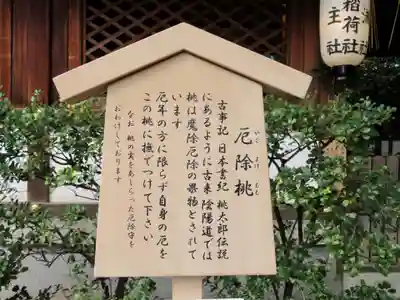 厄除桃
やく よけ もも
古事記 日本書紀 桃太郎伝説
にあるように古来陰陽道では
桃は魔除厄除の果物とされて
います
厄年の方に限らず自身の厄を
この桃に撫でつけて下さい
なお 桃の実をあしらった厄除守を
おわけしております
稲荷社
主社